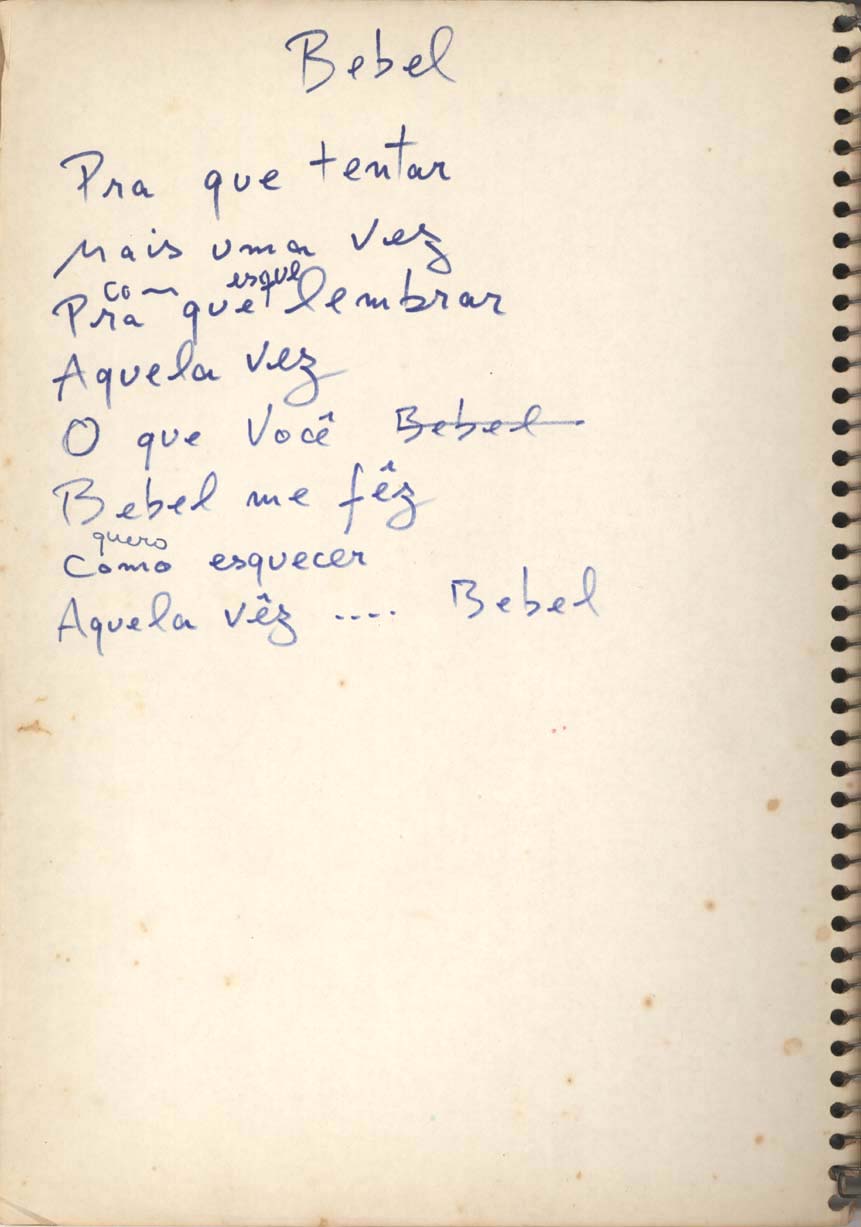 Bebel
Pra que tentar
Mais uma vez
co esque
Pra que lembrar
Aquela vez
O que Você Bebel
Bebel me fêz
quero
Como esquecer
Aquela vêz .... Bebel